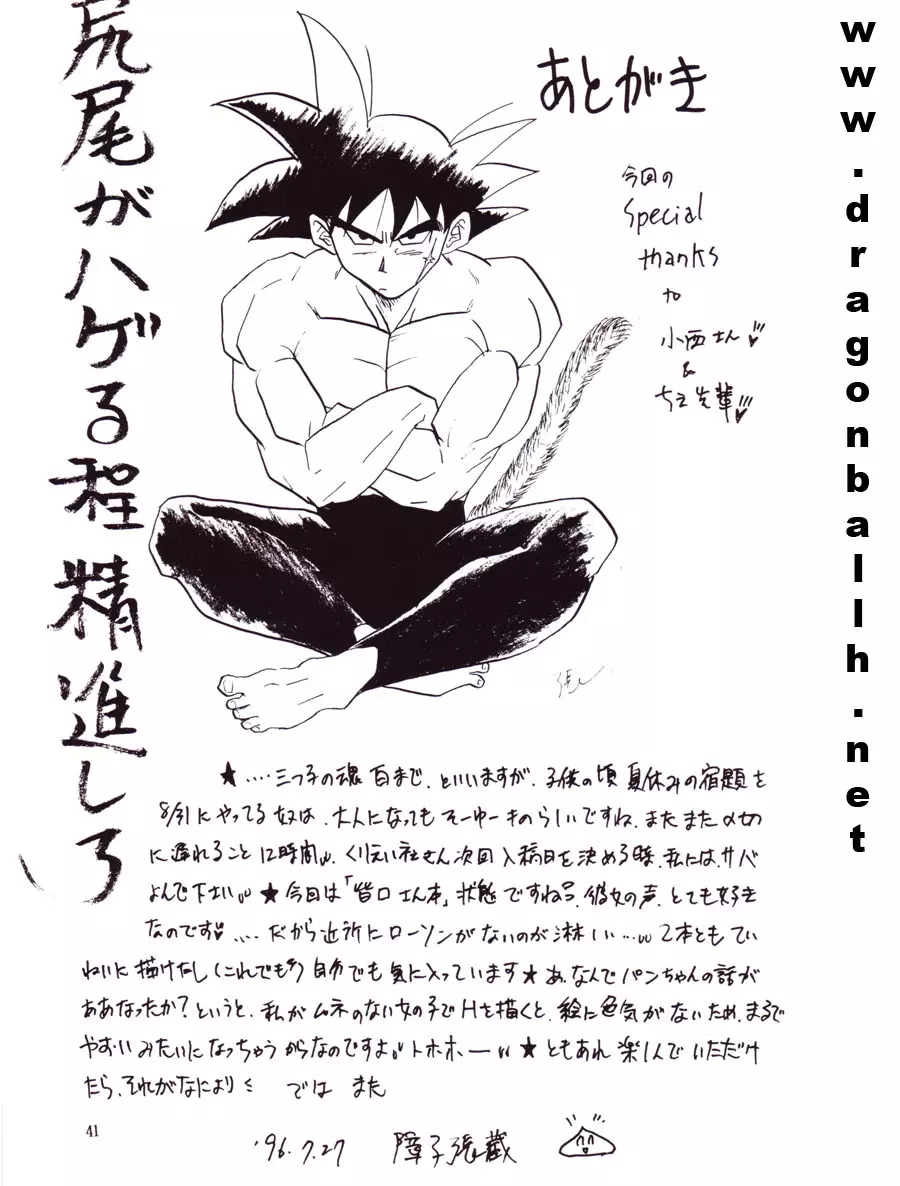 尻尾がハゲる程精進しろ
あとがき
今回の
Special
thanks
to
小西さん
&
ちえ先輩
www.dragonballh.net
★....三つ子の魂百まで、といいますが、子供の頃夏休みの宿題を
8/31にやってる奴は、大人になってもそーゆーものらしいですね、またまた〆切
に遅れること12時間、くりえい社さん次回入稿日を決める時、私には、サバ
よんで下さい。★今回は「皆口さん本」状態ですね 彼女の声、とても好き
なのです....だから近所にローソンがないのが淋しい...2本ともてい
ねいに描けたし(これでも)自分でも気に入っています★あ、なんでパンちゃんの話が
ああなったか?というと、私がムネのない女の子でHを描くと、絵に色気がないため、まるで
やおいみたいになっちゃうからなのですよ トホホー ★ともあれ楽しんでいただけ
たら、それがなにより では また
41
'96.7.27 障子張蔵